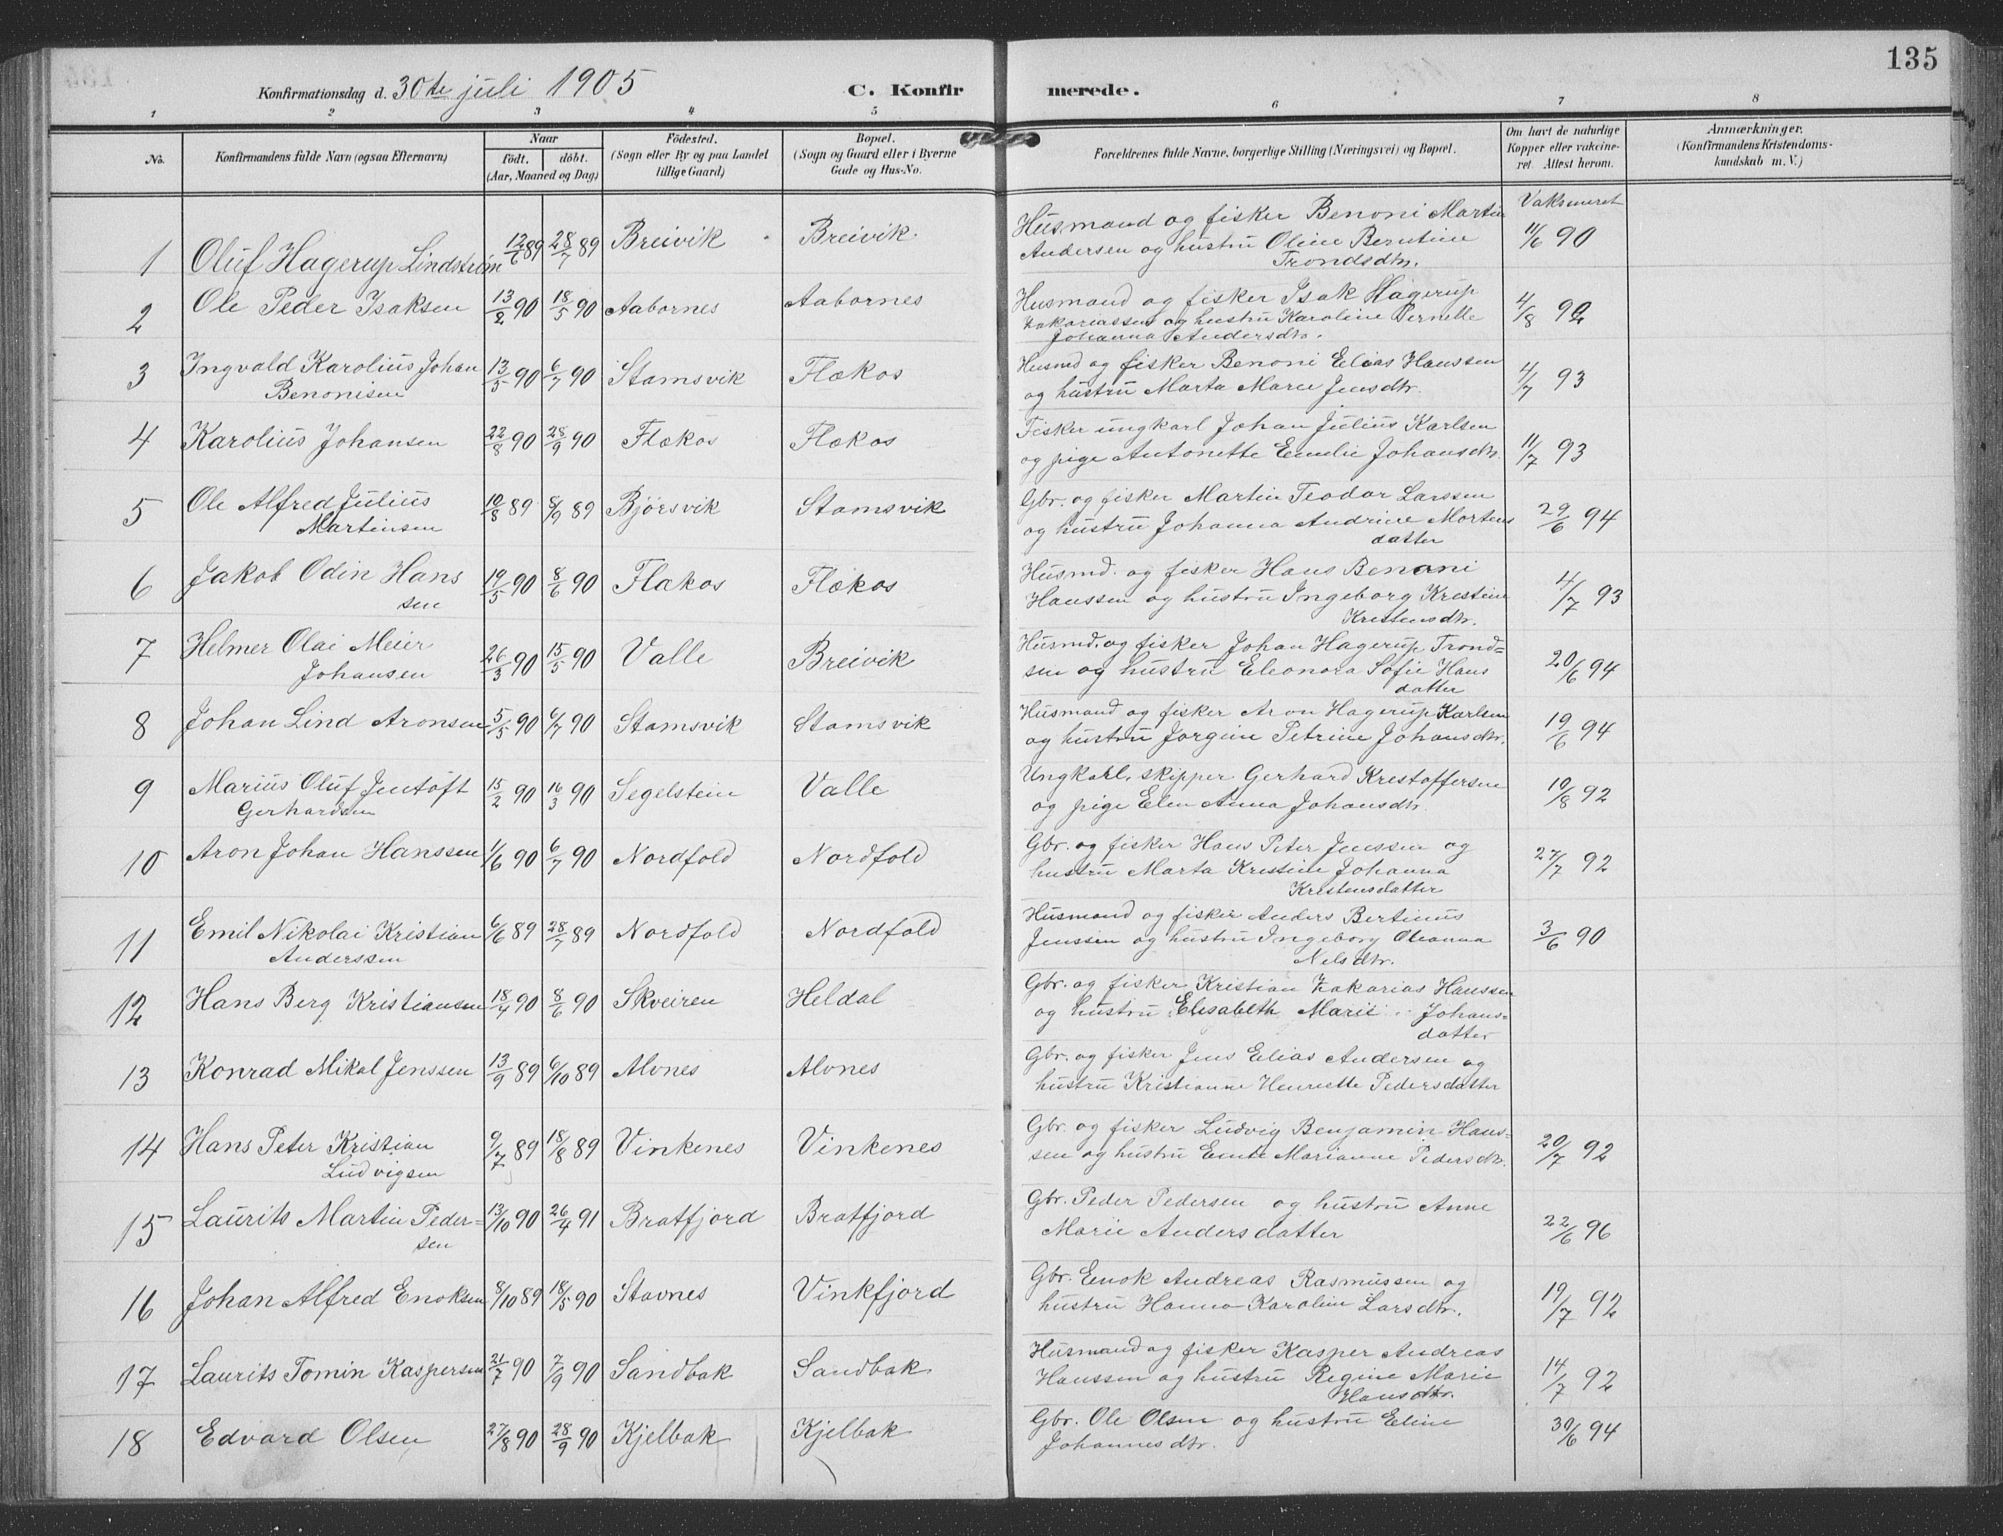 135
Konfirmationsdag d. 30te juli 1905 C. Konfirmerede.
1 2 3 4 5 6 7 8
No. Konfirmandens fulde Navn (ogsaa Efternavn)
Naar
født. døbt.
(Aar, Maaned og Dag)
Födested.
(Sogn eller By og paa Landet
tillige Gaard)
Bopæl.
(Sogn og Gaard eller i Byerne
Gade og Hus-No.
Forældrenes fulde Navne, borgerlige Stilling (Næringsvei) og Bopæl.
Om havt de naturlige
Kopper eller vaccine-
ret. Attest herom.
Anmærkninger,
(Konfirmandens Kristendoms-
kundskab m. V.)
Vaksineret
1 Oluf Hagerup Lindstrøm 12/6 89 28/7 89 Breivik Breivik Husmand og fisker Benoni Martin 11/6 90
Andersen og hustru Oline Berntine
Trondsdtr.
2 Ole Peder Isaksen 13/2 90 18/5 90 Aabornes Aabornes Husmand og fisker Isak Hagerup 4/8 92
Zakariassen og hustru Karoline Pernelle
Johanna Andersdtr.
3 Ingvald Karolius Johan 13/5 90 6/7 90 Stamsvik Flækos Husmd og fisker Benoni Elias Hanssen 4/7 93
Benonisen og hustru Marta Marie Jensdtr.
4 Karolius Johansen 22/8 90 28/9 90 Flækos Flækos Fisker ungkarl Johan Julius Karlsen 11/7 93
og pige Antonette Emilie Johansdtr.
5 Ole Alfred Julius 10/8 89 8/9 89 Bjørsvik Stamsvik Gbr. og fisker Martin Teodor Larssen 29/6 94
Martinsen og hustru Johanna Andrine Mortens
datter
6 Jakob Odin Hans 19/5 90 8/6 90 Flækos Flækos Husmd. og fisker Hans Benoni 4/7 93
sen Hanssen og hustru Ingeborg Kristine
Kristensdtr.
7 Helmer Olai Meier 26/3 90 15/5 90 Valle Breivik Husmd. og fisker Johan Hagerup Trond= 20/6 94
Johansen sen og hustru Eleonora Sofie Hans
datter
8 Johan Lind Aronsen 5/5 90 6/7 90 Stamsvik Stamsvik Husmand og fisker Aron Hagerup Karlsen 19/6 94
og hustru Jørgine Petrine Johansdtr.
9 Marius Oluf Jentoft 15/2 90 16/3 90 Segelstein Valle Ungkarl, skipper Gerhard Kristoffersen 10/8 92
Gerhardsen og pige Elen Anna Johansdtr.
10 Aron Johan Hanssen 1/6 90 6/7 90 Nordfold Nordfold Gbr. og fisker Hans Peter Jenssen og 27/7 92
hustru Marta Kristine Johanna
Kristensdatter
11 Emil Nikolai Kristian 6/6 89 28/7 89 Nordfold Nordfold Husmand og fisker Anders Bertinus 3/6 90
Anderssen Jenssen og hustru Ingeborg Oleanna
Nelsdtr.
12 Hans Berg Kristiansen 18/4 90 8/6 90 Skveiren Heldal Gbr. og fisker Kristian Zakarias Hanssen
og hustru Elisabeth Marie Johans=
datter
13 Konrad Mikal Jenssen 13/9 89 6/10 89 Alvnes Alvnes Gbr. og fisker Jens Elias Andersen og
hustru Kristianne Henriette Pedersdatter
14 Hans Peter Kristian 9/7 89 18/8 89 Vinkenes Vinkenes Gbr. og fisker Ludvig Benjamin Hans= 20/7 92
Ludvigsen sen og hustru Marianne Pedersdtr.
15 Laurits Martin Peder= 13/10 90 26/4 91 Bratfjord Bratfjord Gbr. Peder Pedersen og hustru Anne 22/6 96
sen Marie Andersdatter
16 Johan Alfred Enoksen 8/10 89 18/5 90 Stavnes Vinkfjord Gbr. Enok Andreas Rasmussen og 19/7 92
hustru Hanna Karoline Larsdtr.
17 Laurits Tomin Kaspersen 21/7 90 7/9 90 Sandbak Sandbak Husmand og fisker Kasper Andreas 14/7 92
Hanssen og hustru Regine Marie
Hansdtr.
18 Edvard Olsen 27/8 90 28/9 90 Kjelbak Kjelbak Gbr. Ole Olsen og hustru Eline 30/6 94
Johannesdtr.